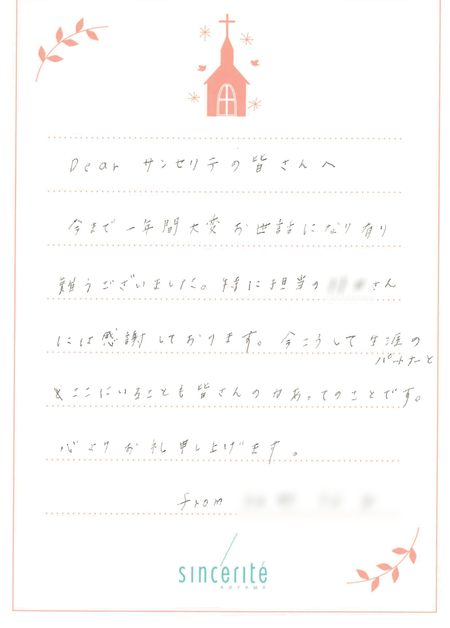 Dear サンセリテの皆さんへ
今まで一年間大変お世話になり有り
難うございました。特に担当の さん
には感謝しております。今こうして生涯の
パートナーと
ここにいることも皆さんの力あってのことです。
心よりお礼申し上げます。
from
sincérité